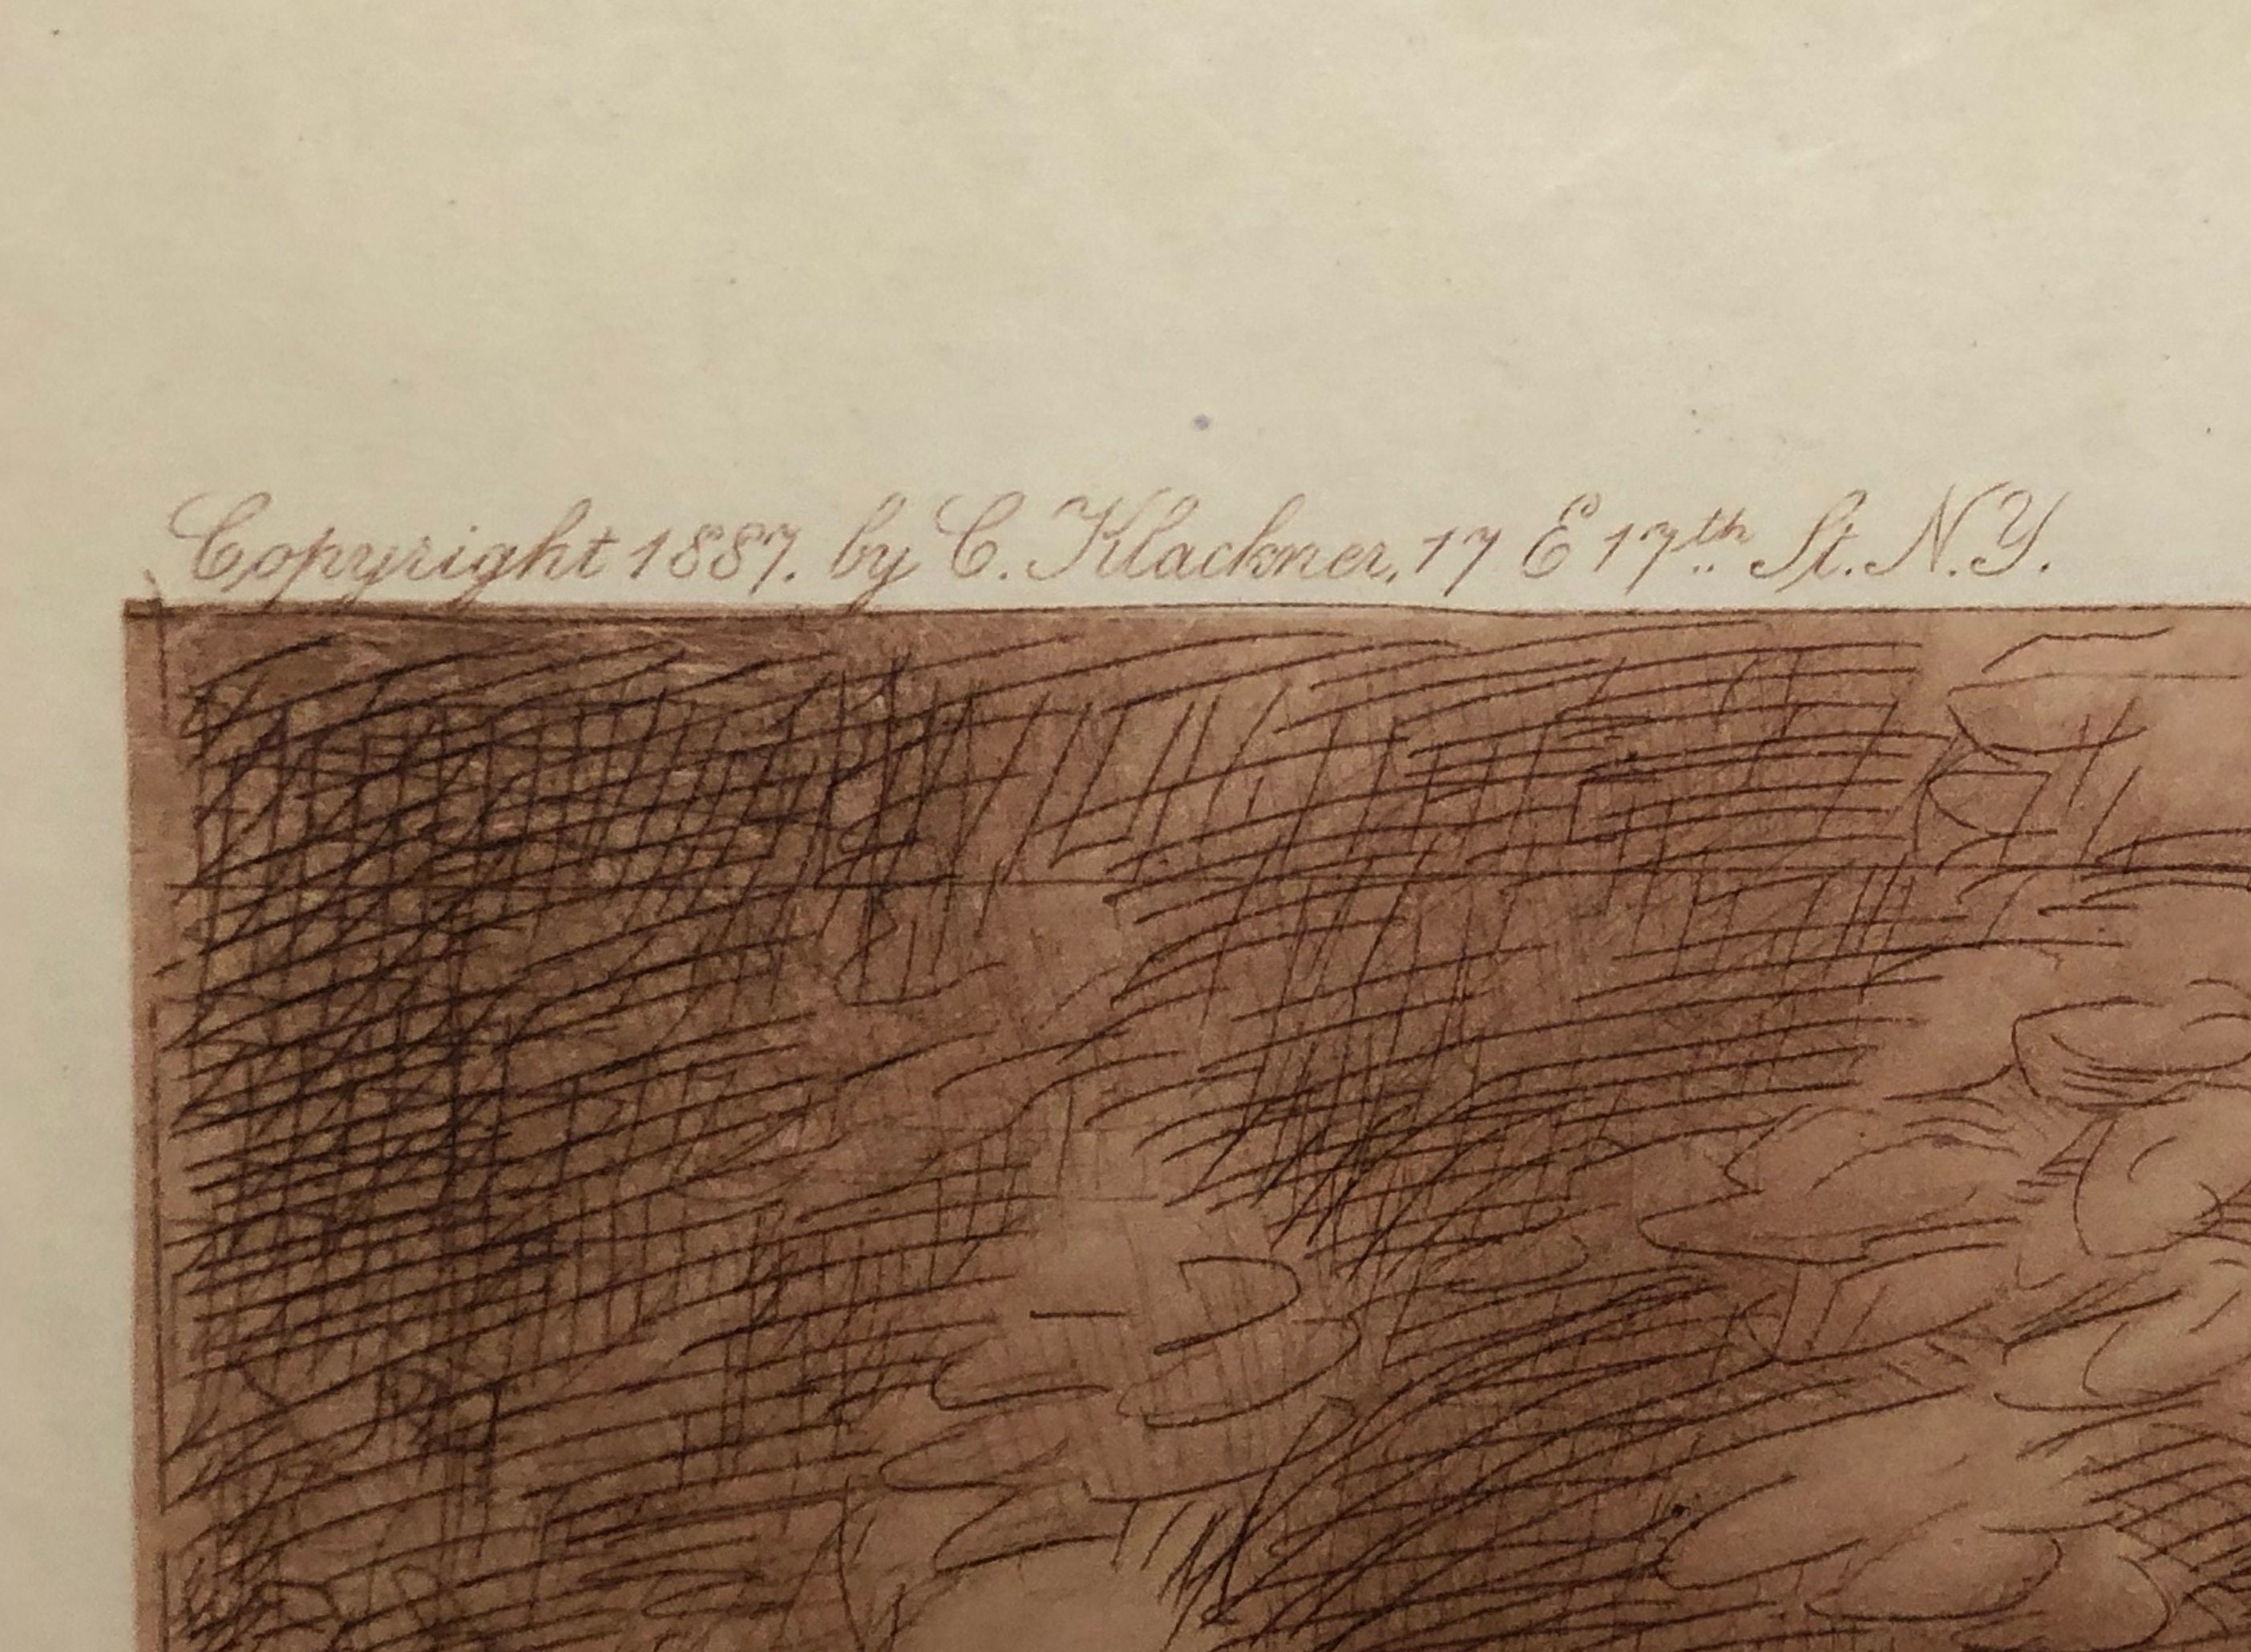 Copyright 1887. by C. Klackner, 17 E 17th St. N.Y.